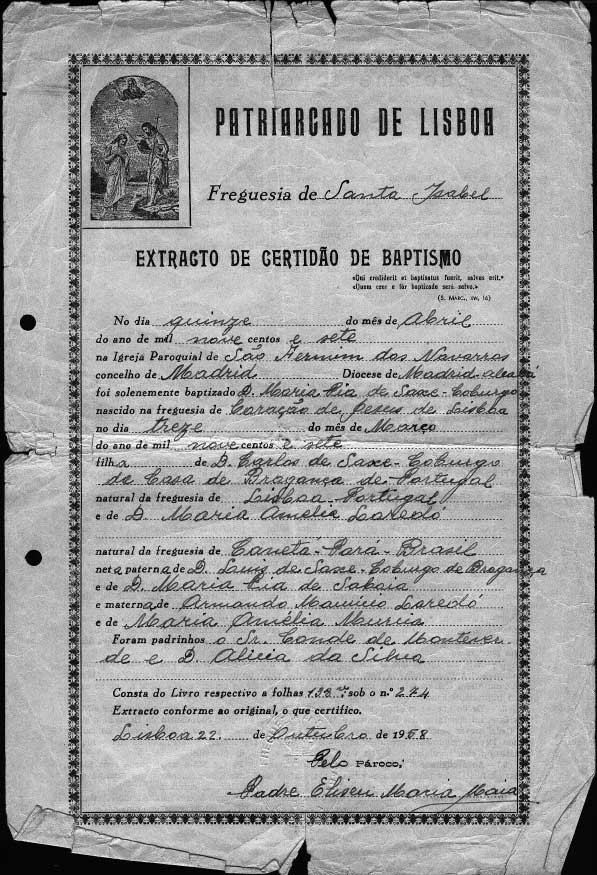 PATRIARCADO DE LISBOA
Freguesia de Santa Isabel
EXTRACTO DE CERTIDÃO DE BAPTISMO
«Qui crediderit et baptisatus fuerit, salvus erit.»
«Quem crer e fôr baptizado será salvo.»
(S. MARC., XVI, 16)
No dia quinze do mês de Abril
do ano de mil nove centos e sete
na Igreja Paroquial de São Fermim dos Navarros
concelho de Madrid Diocese de Madrid-alcalá
foi solenemente baptizado D. Maria Pia de Saxe-Coburgo
nascido na freguesia de Coração de Jesus de Lisboa
no dia treze do mês de Março
do ano de mil nove centos e sete
filha de D. Carlos de Saxe-Coburgo
de Casa de Bragança de Portugal
natural da freguesia de Lisboa-Portugal
e de D. Maria Amélia Laredó
natural da freguesia de Canetá-Pará-Brasil
neta paterna de D. Luiz de Saxe-Coburgo de Bragança
e de D. Maria Pia de Saboia
e materna de Armando Laredó
e de Maria Amélia Murcia
Foram padrinhos o Sr. Conde de Montever
de e D. Alicia da Silva
Consta do Livro respectivo a folhas sob o n.º 274
Extracto conforme ao original, o que certifico.
Lisboa 22 de Outubro de 1958
Pelo PÁROCO,
Padre Eliseu Maria Maia